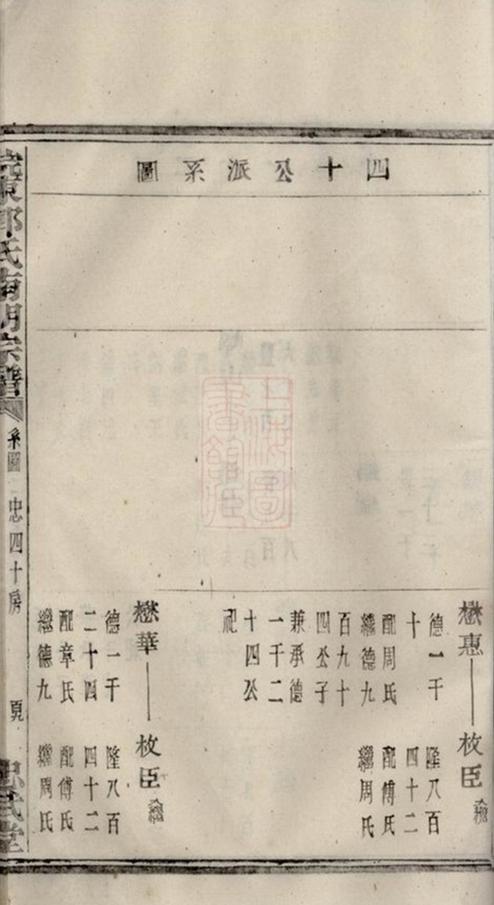 四十公派系圖
懋惠
德一千
十
配周氏
繼德九
百九十
四公子
兼承德
一千二
十四公
祀
枚臣
隆八百
四十二
配傅氏
繼周氏
懋華
德一千
二十四
配章氏
繼德九
枚臣
隆八百
四十二
配傅氏
繼周氏
氏
宗譜
系圖
忠四十房
頁
堂
上海圖書館藏